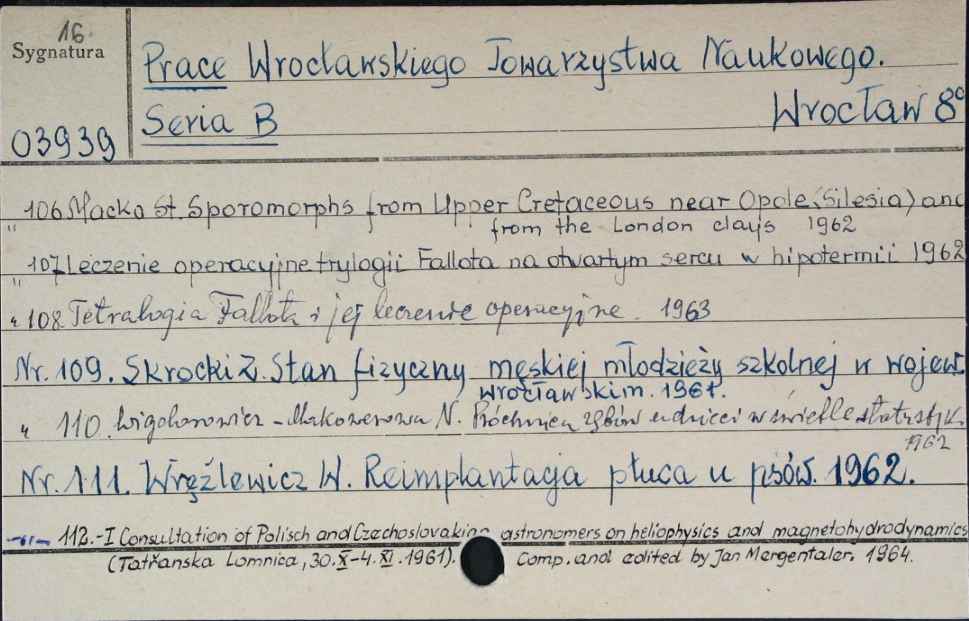 16.
Sygnatura
03939
Prace Wrocławskiego Towarzystwa Naukowego.
Seria B
Wrocław 8°
" 106 Macko St. Sporomorphs from Upper Cretaceous near Opole (Silesia) and
from the London clays 1962
" 107 Leczenie operacyjne trylogii Fallota na otwartym sercu w hipotermii 1962
" 108 Tetralogia Fallota i jej leczenie operacyjne. 1963
Nr. 109. Skrocki Z. Stan fizyczny męskiej młodzieży szkolnej w wojew.
wrocławskim. 1961.
" 110. Wigdorowicz-Makowerowa N. Próchnica zębów u dzieci w świetle statystyk.
1962
Nr. 111. Wrężlewicz W. Reimplantacja płuca u psów. 1962.
-"- 112.-I Consultation of Polisch and Czechoslovakian astronomers on heliophysics and magnetohydrodynamics
(Tatřanska Lomnica, 30.X-4.XI.1961). Comp. and edited by Jan Mergentaler. 1964.